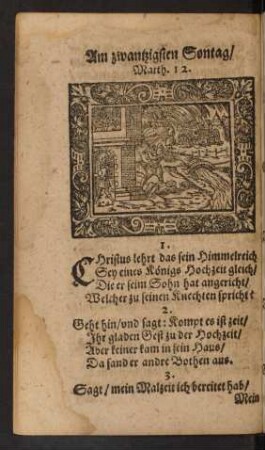 Am zwantzigsten Sontag/
Matth. 12.
1.
CHristus lehrt das sein Himmelreich
Sey eines Königs Hochzeit gleich/
Die er seim Sohn hat angericht/
Welcher zu seinen Knechten spricht:
2.
Geht hin/vnd sagt: Kompt es ist zeit/
Ihr gladen Gest zu der Hochzeit/
Aber keiner kam in sein Haus/
Da sand er andre Bothen aus.
3.
Sagt/ mein Malzeit ich bereitet hab/
Mein